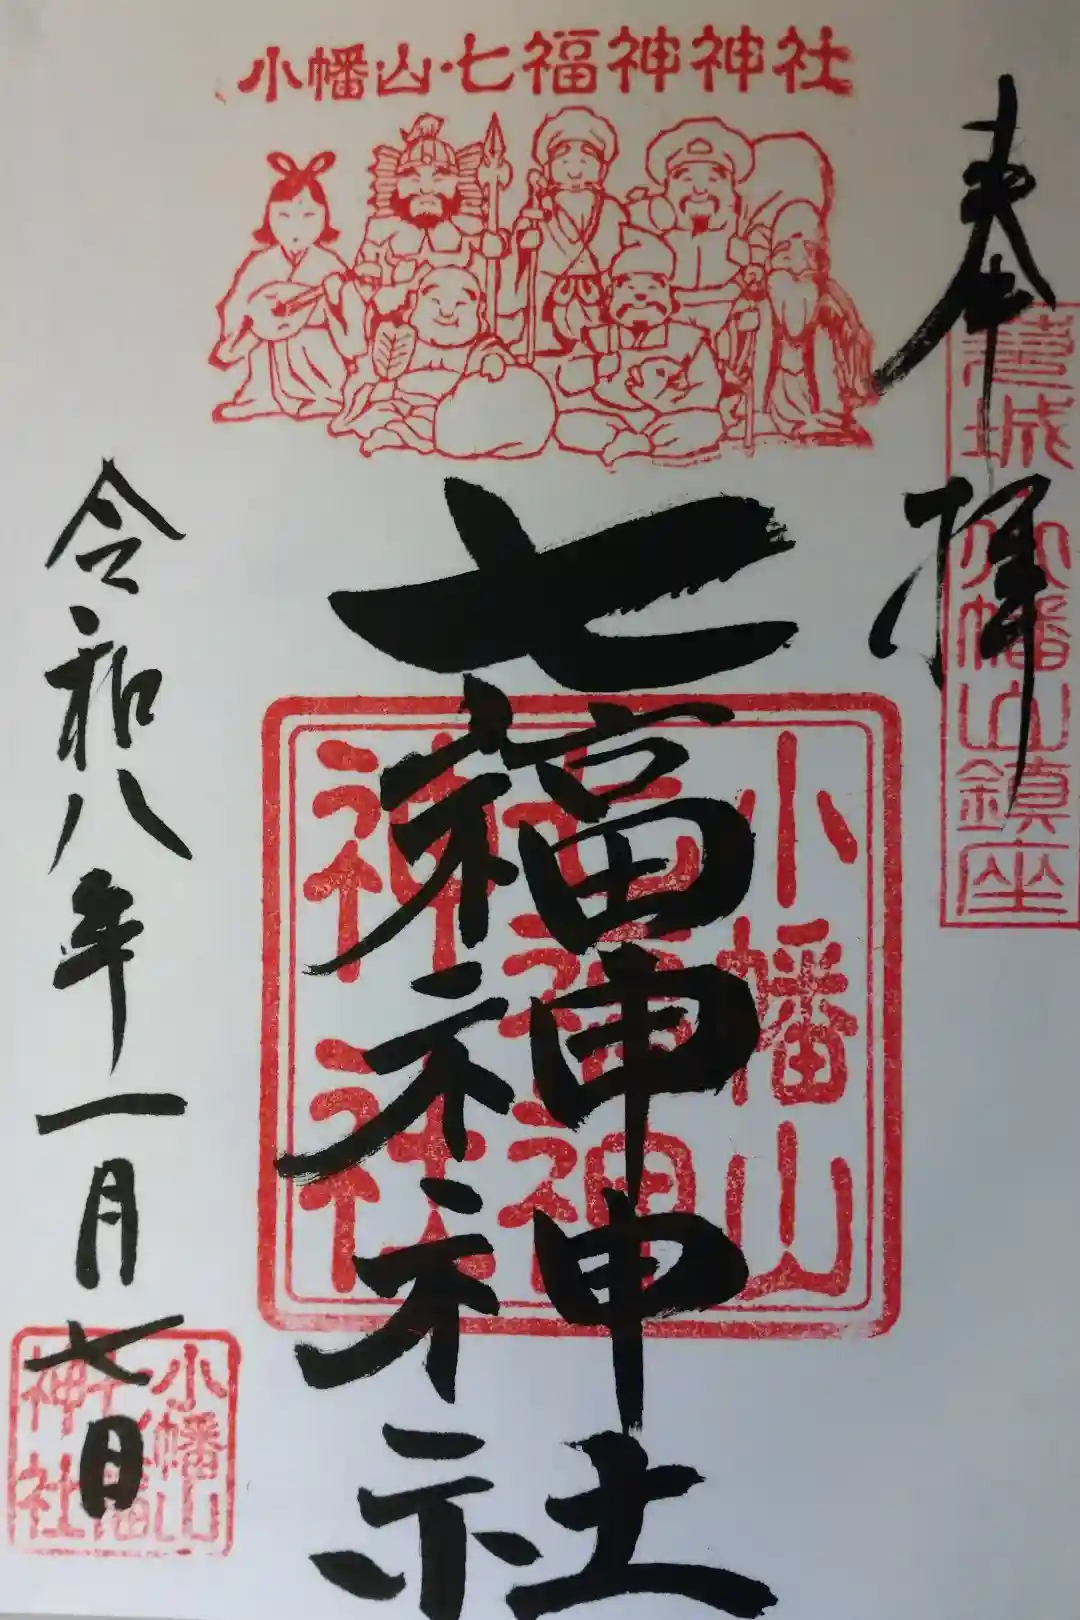 小幡山・七福神神社
奉拝
小幡山鎮座
七福神神社
小幡山
七福神
神社
令和八年一月七日
小幡山
神社